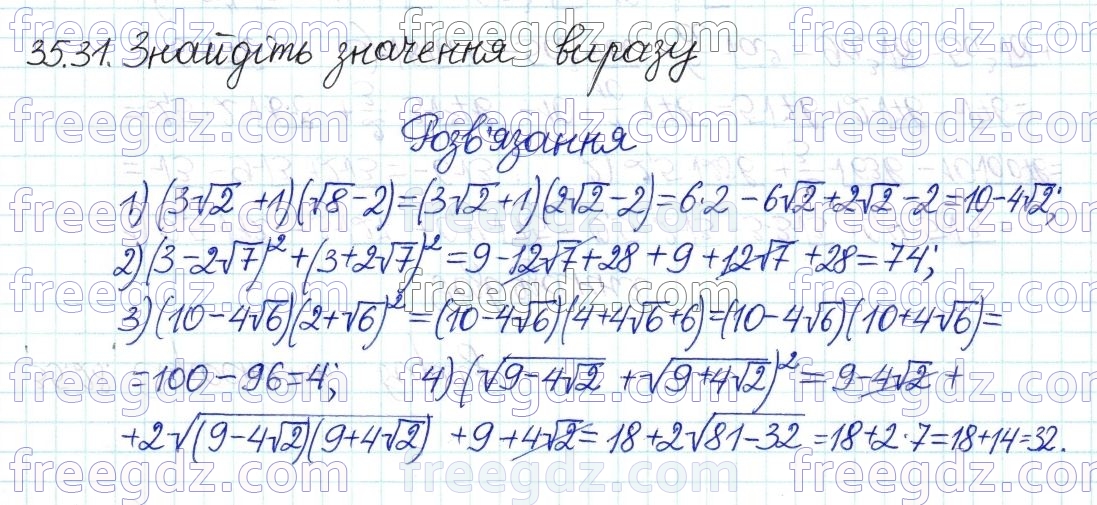 35.31. Знайдіть значення виразу
Розв'язання
1) (3√2 + 1)(√8 - 2) = (3√2 + 1)(2√2 - 2) = 6·2 - 6√2 + 2√2 - 2 = 10 - 4√2;
2) (3 - 2√7)² + (3 + 2√7)² = 9 - 12√7 + 28 + 9 + 12√7 + 28 = 74;
3) (10 - 4√6)(2 + √6)² = (10 - 4√6)(4 + 4√6 + 6) = (10 - 4√6)(10 + 4√6) =
= 100 - 96 = 4; 4) (√(9 - 4√2) + √(9 + 4√2))² = 9 - 4√2 +
+ 2√((9 - 4√2)(9 + 4√2)) + 9 + 4√2 = 18 + 2√(81 - 32) = 18 + 2·7 = 18 + 14 = 32.
freegdz.com.com